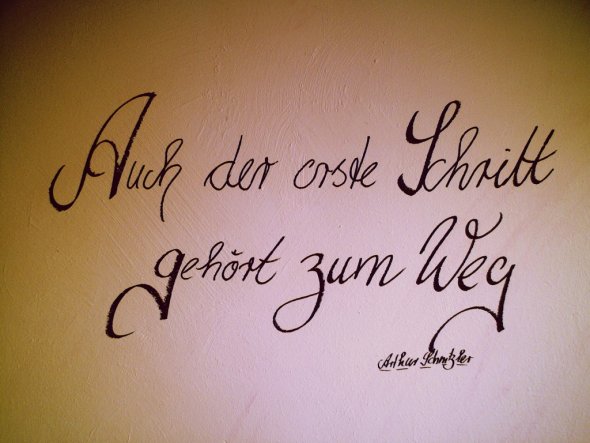 Auch der erste Schritt
gehört zum Weg
Arthur Schnitzler